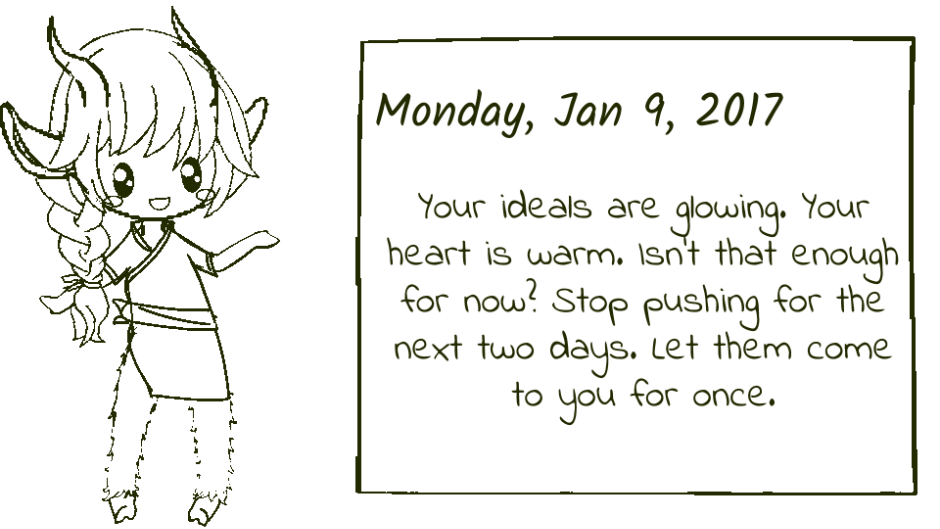 Monday, Jan 9, 2017
Your ideals are glowing. Your
heart is warm. Isn't that enough
for now? Stop pushing for the
next two days. Let them come
to you for once.